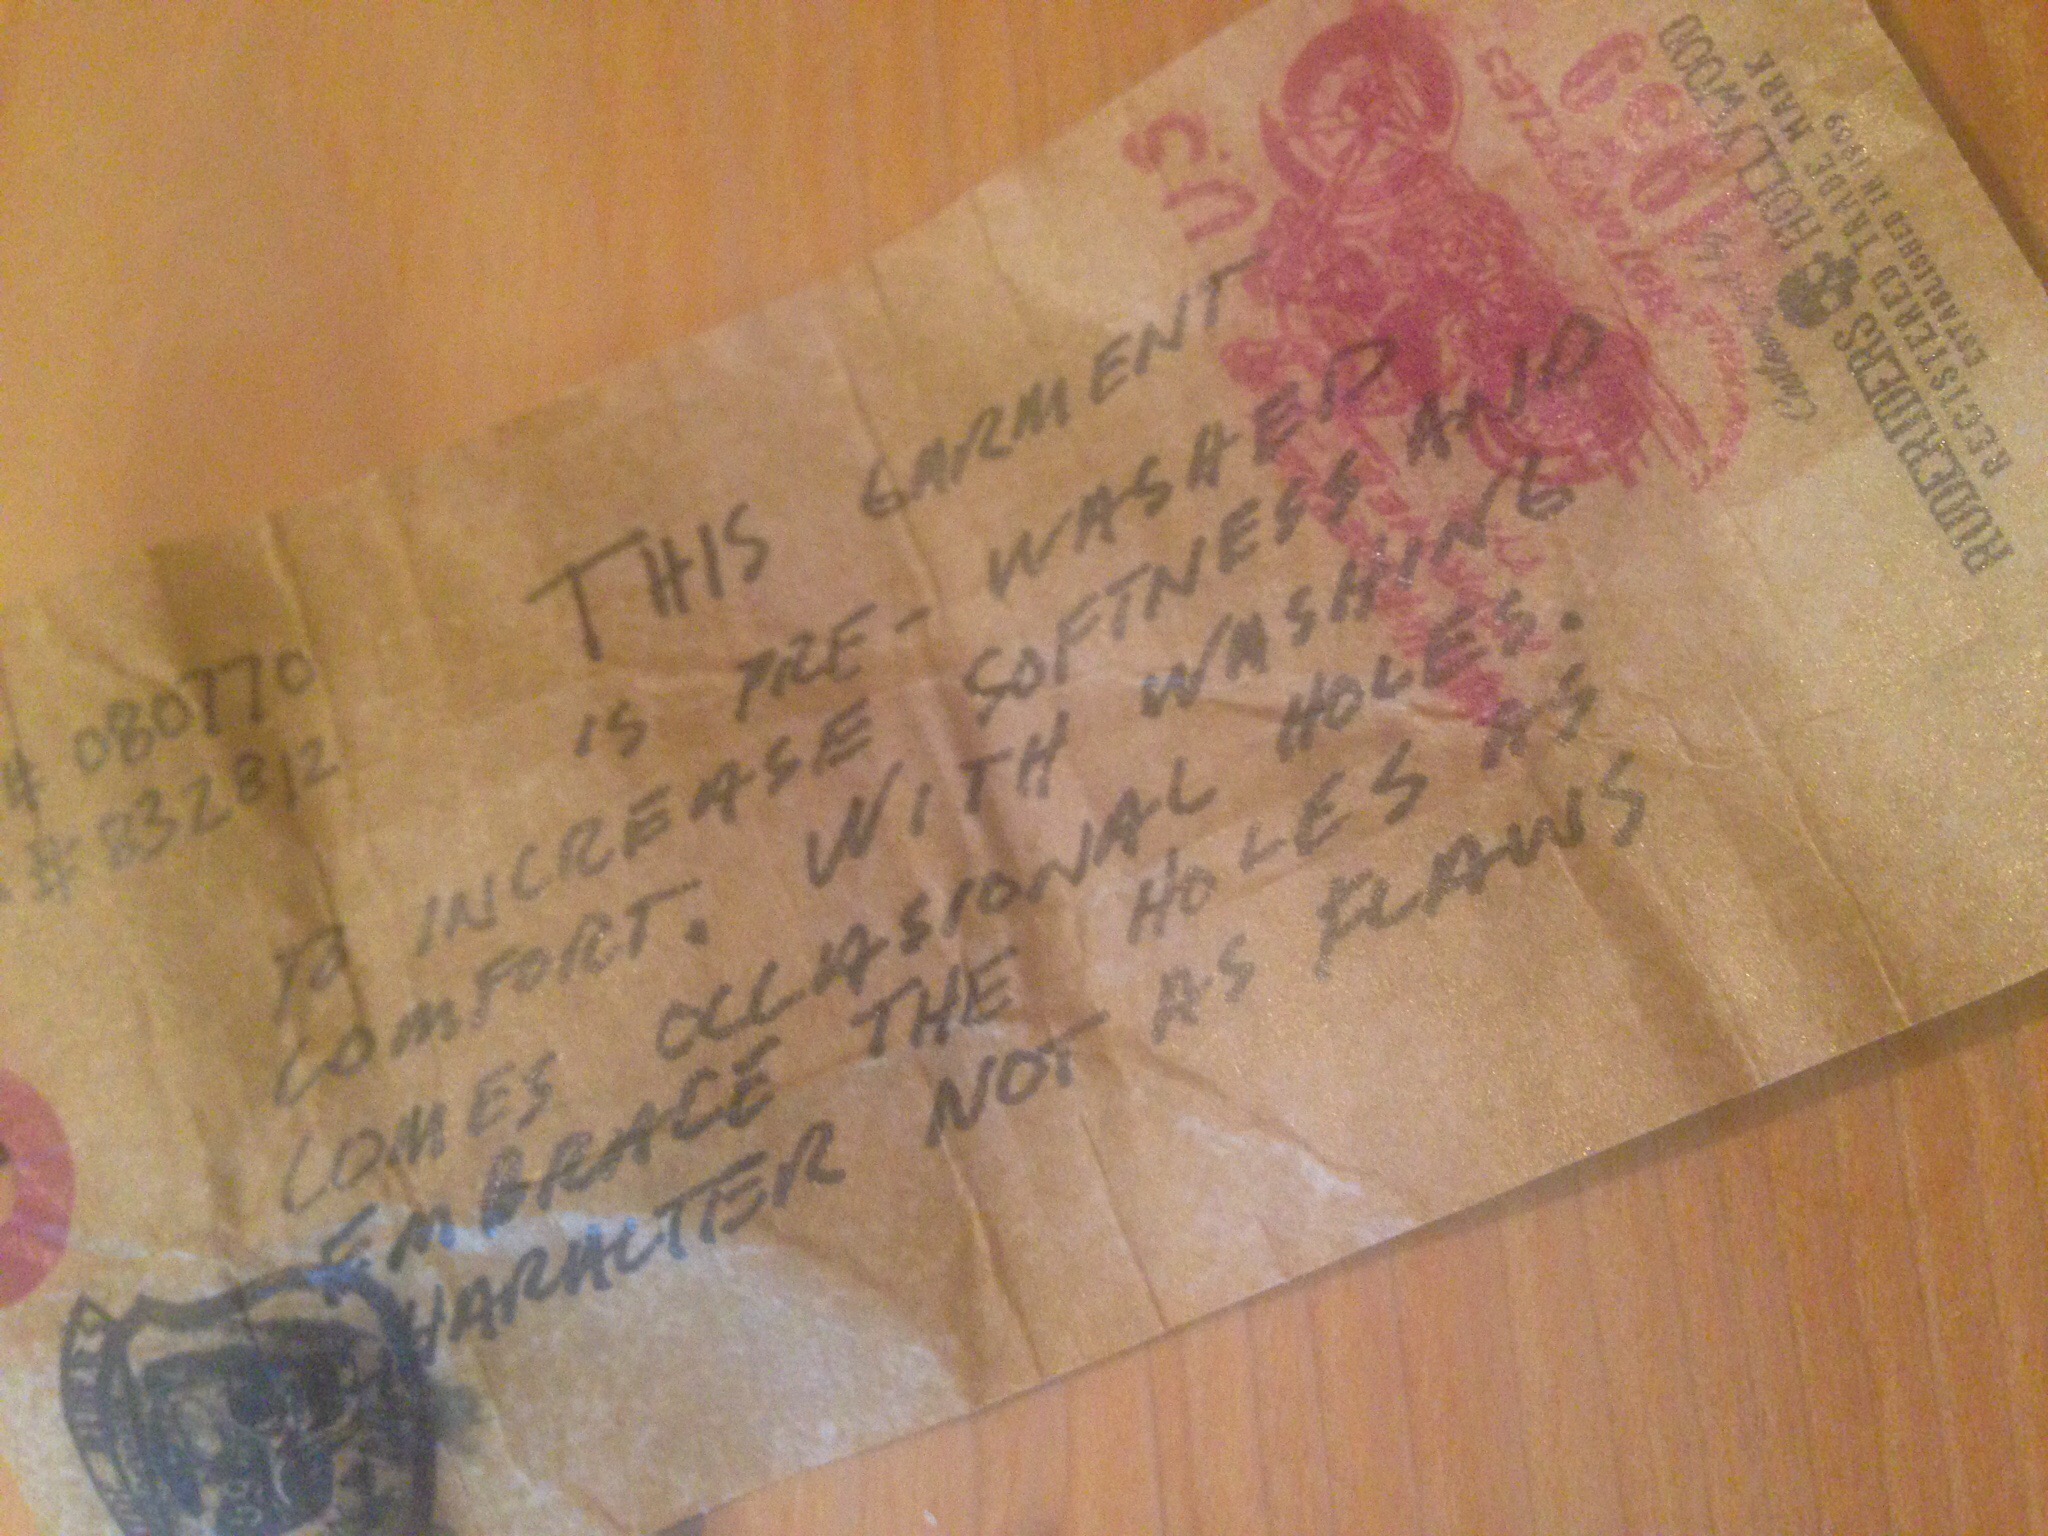 # 080770
# 832812
THIS GARMENT
IS PRE-WASHED
TO INCREASE SOFTNESS AND
COMFORT. WITH WASHING
COMES OCCASIONAL HOLES.
EMBRACE THE HOLES AS
CHARACTER NOT AS FLAWS
RUDE RIDERS HOLLYWOOD
REGISTERED TRADE MARK
ESTABLISHED IN 1969